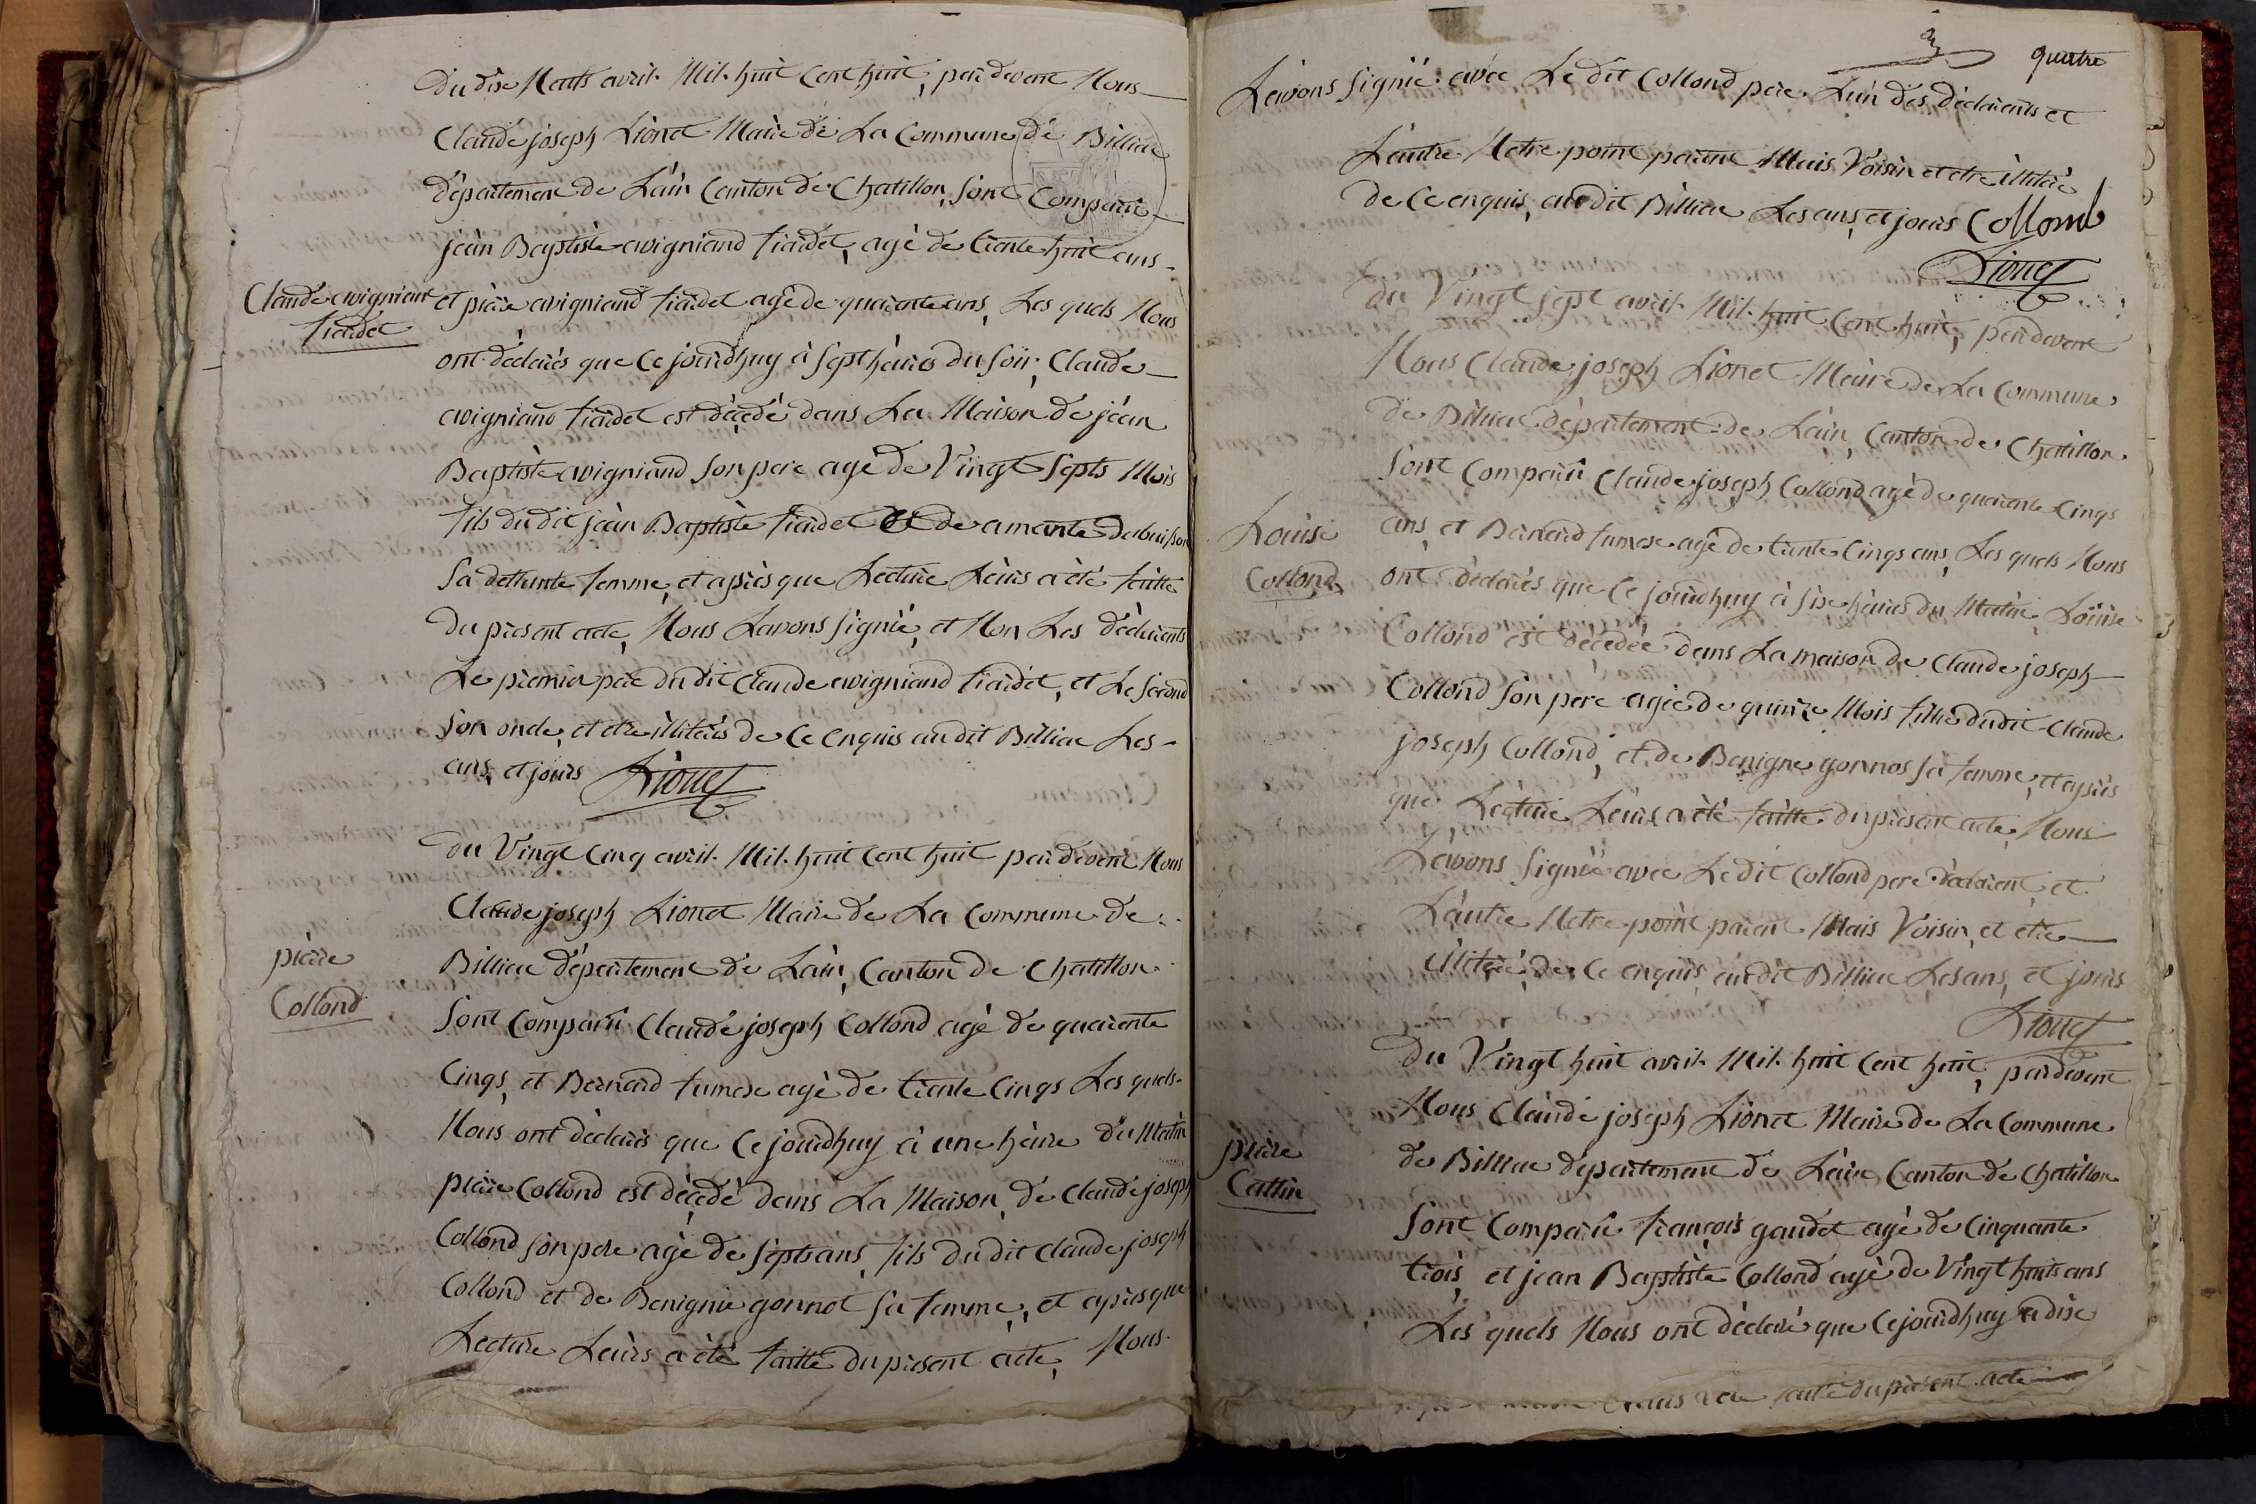 Du dix Neuf avril Mil huit Cent huit, par devant Nous
Claude joseph Lionet Maire de La Commune de Billiac
département de L'ain Canton de Chatillon, Sont Comparu
jean Baptiste avigniand tiaidet, agé de trante huit ans
Claude avigniant
tiaidet
et piaire avigniand tiaidet agé de quarante ans, Les quels Nous
ont déclarés que Ce jourdhuy à Sept heures du Soir, Claude
avigniand tiaidet est décédé dans La Maison de jean
Baptiste avigniand Son pere agé de Vingt Septs Mois
fils du dit jean Baptiste tiaidet et de amante
Sa deffunte femme, et après que Lecture Leurs a été faitte
Du présent acte, Nous Lavons Signié, et Non Les déclarents
Le premier père du dit Claude avigniand tiaidet, et Le Second
Son oncle, et etre illiterés de Ce enquis au dit Billiac Les
ans, et jours Lionet
Du Vingt Cinq avril Mil huit Cent huit par devant Nous
Claude joseph Lionet Maire de La Commune de
piaire
Collond
Billiac département de L'ain, Canton de Chatillon
Sont Comparu Claude joseph Collond agé de quarante
Cinqs, et Bernard fumex agé de trante Cinqs Les quels
Nous ont déclarés que Ce jourdhuy à une heure du Matin
piaire Collond est décédé dans La Maison, de Claude joseph
Collond Son pere agé de Septs ans, fils du dit Claude joseph
Collond et de Benignie gonnot Sa femme, et après que
Lecture Leurs a été faitte du présent acte, Nous
3 quatre
Lavons Signié avec Le dit Collond père L'un des déclarents et
L'autre Netre point parant Mais Voisin et etre illiteré
de Ce enquis, au dit Billiac Les ans, et jours Collomb
Lionet
Du Vingt Sept avril Mil huit Cent huit, par devant
Nous Claude joseph Lionet Maire de La Commune
de Billiac département de L'ain, Canton de Chatillon
Sont Comparu Claude joseph Collond agé de quarante Cinqs
Louise
Collond
ans, et Bernard fumex agé de trante Cinqs ans, Les quels Nous
ont déclarés que Ce jourdhuy à Six heures du Matin Louise
Collond est décédée dans La maison de Claude joseph
Collond Son pere agée de quinze Mois fille dudit Claude
joseph Collond, et de Benigne gonnos Sa femme, et après
que Lecture Leurs a été faitte du présent acte, Nous
Lavons Signié avec Le dit Collond pere déclarent, et
L'autre Netre point parant Mais Voisin, et etre
illiteré, de Ce enquis, au dit Billiac Les ans, et jours
Lionet
Du Vingt huit avril Mil huit Cent huit, par devant
Nous Claude joseph Lionet Maire de La Commune
piaire
Cattin
de Billiac département de L'ain Canton de Chatillon
Sont Comparu francois gaudet agé de Cinquante
trois, et jean Baptiste Collond agé de Vingt huits ans
Les quels Nous ont déclaré que Ce jourdhuy a dix
faite du présent acte